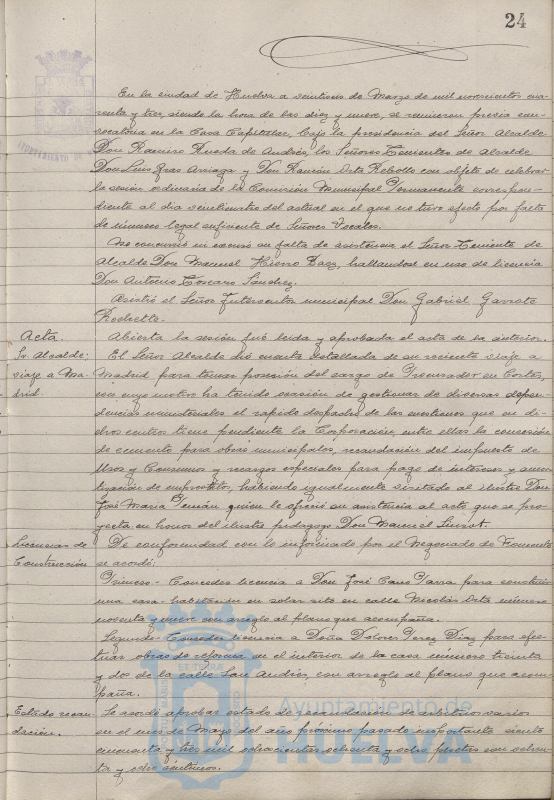 24
En la ciudad de Huelva a veintiseis de Marzo de mil novecientos cua-
renta y tres, siendo la hora de las diez y nueve, se reunieron previa con-
vocatoria en la Casa Capitular, bajo la presidencia del Señor Alcalde
Don Ramiro Rueda de Andrés, los Señores Tenientes de Alcalde
Don Luis Arriaga y Don Ramón Orta Rebollo con objeto de celebrar
la sesión ordinaria de la Comisión Municipal Permanente correspon-
diente al dia veinticuatro del actual en el que no tuvo efecto por falta
de número legal suficiente de Señores Vocales.
No concurrió ni excusó su falta de asistencia el Señor Teniente de
Alcalde Don Manuel Hierro, hallandose en uso de licencia
Don Antonio Toscano Sánchez.
Asistió el Señor Interventor municipal Don Gabriel Garrote
Acta. Abierta la sesión fué leida y aprobada el acta de la anterior.
Sr. Alcalde; El Señor Alcalde dió cuenta detallada de su reciente viaje a
viaje a Ma- Madrid para tomar posesión del cargo de Procurador en Cortes,
drid. con cuyo motivo ha tenido ocasión de gestionar de diversas depen-
dencias ministeriales el rápido despacho de las cuestiones que en di-
chos centros tiene pendiente la Corporación, entre ellas la concesión
de cemento para obras municipales, recaudación del impuesto de
Usos y Consumos y recargos especiales para pago de intereses y amor-
tización de empréstitos, habiendo igualmente visitado al ilustre Don
José María Pemán, quien le ofreció su asistencia al acto que se pro-
yecta en honor del ilustre pedagogo Don Manuel Siurot.
Licencias de De conformidad con lo informado por el Negociado de Fomento
Construcción se acordó:
Primero - Conceder licencia a Don José Cano Parra para construir
una casa-habitación en solar sito en calle Nicolás Orta número
noventa y nueve con arreglo al plano que acompaña.
Segundo - Conceder licencia a Doña Dolores Perez Diaz para efec-
tuar obras de reforma en el interior de la casa número treinta
y dos de la calle San Andrés, con arreglo al plano que acom-
paña.
Estado recau- Se acordó aprobar estado de recaudación de arbitrios varios
dación. en el mes de Mayo del año próximo pasado importante ciento
cincuenta y tres mil ochocientas ochenta y ocho pesetas con ochen-
ta y ocho céntimos.
Ayuntamiento de
HUELVA